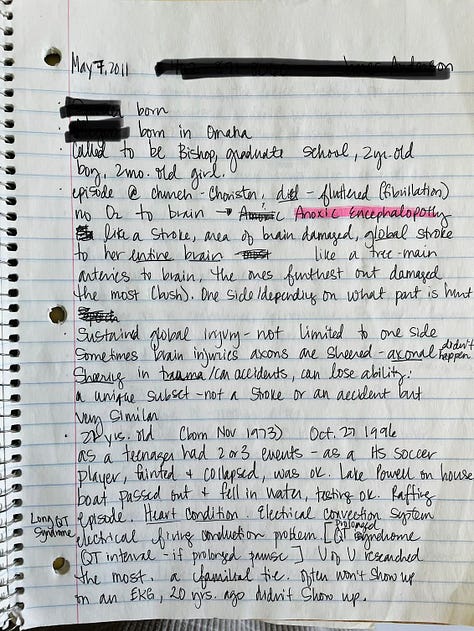 May 7, 2011
born
born in Omaha
Called to be Bishop, graduate school, 2yr. old
boy, 2mo. old girl.
episode @ church - Chorister, did - fluttered (fibrillation)
no O2 to brain → Anoxic Encephalopathy
like a stroke, area of brain damaged, global stroke
to her entire brain like a tree - main
arteries to brain, the ones furthest out damaged
the most (bush). One side/depending on what part is hurt
Sustained global injury - not limited to one side
Sometimes brain injuries axons are sheered - axonal didn't happen.
Sheering in trauma/car accidents, can lose ability.
a unique subset - not a stroke or an accident but
very similar
yrs. old (born Nov 1973) Oct. 27 1996
as a teenager had 2 or 3 events - as a HS soccer
player, fainted & collapsed, was ok. Lake Powell on house
boat passed out & fell in water, testing ok. Rafting
episode. Heart Condition. Electrical convection system
Long QT Syndrome
electrical firing conduction problem. [prolonged QT syndrome
QT interval - if prolonged pause] U of U researched
the most. a familial tie. often won't show up
on an EKG, 20 yrs. ago didn't show up.